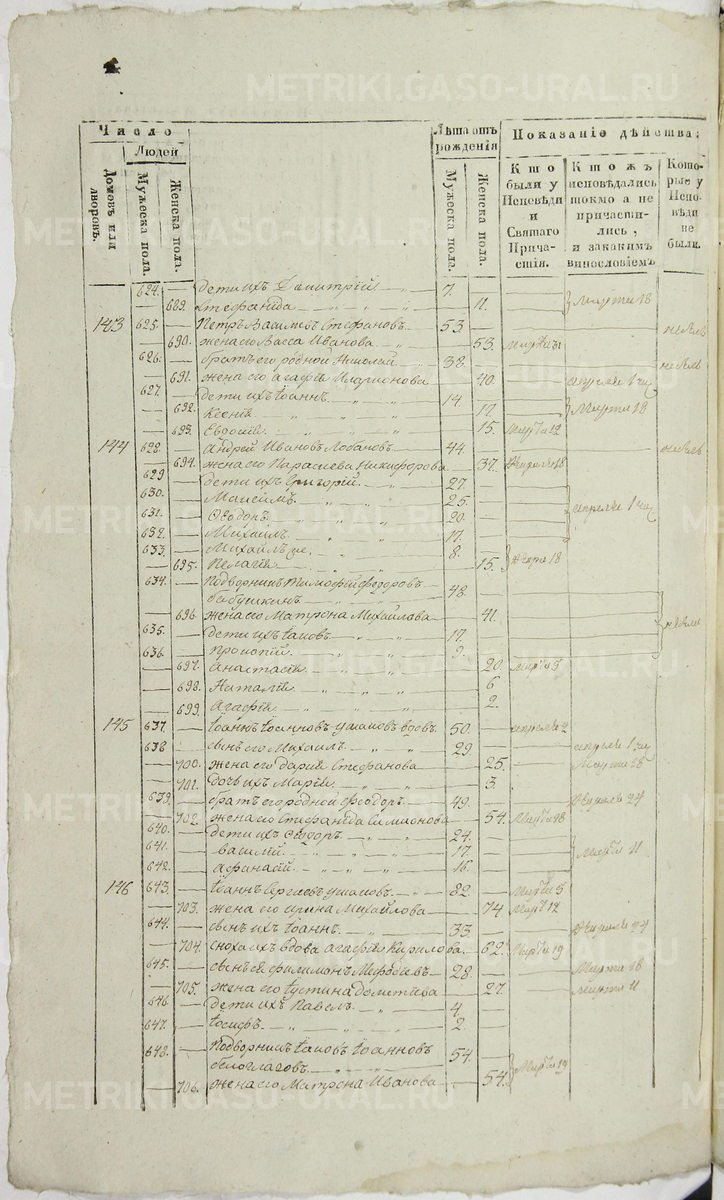 METRIKI.GASO-URAL.RU
Число
Людей
Домовъ или дворовъ.
Мужеска пола.
Женска пола.
Лѣта отъ рожденія
Мужеска пола.
Женска пола.
Показаніе дѣйства;
Кто были у Исповѣди и Святаго Причастія.
Ктожъ исповѣдались токмо а не причастились, и закакимъ винословіемъ
Которые у Исповѣди не были.
624. дети ихъ Димитрій 7.
689. Стефанида 11. Марта 18
143 625. Петръ Васильевъ Стефановъ 53.
690. жена его Васса Иванова 53.
626. братъ его родной Николай 38.
691. жена его Агафія Иларионова 40. апреля 1
627. дети ихъ Іоаннъ 14.
692. Ксенія 17. Марта 18
693. Евдокія 15. Марта 12
144 628. Андрей Ивановъ Лобановъ 44.
694. жена его Параскева Никифорова 37.
629 дети ихъ Григорій 27.
630. Максимъ 25.
631. Ѳеодонъ 20. апреля 1
632. Михаилъ 17.
633. Михаилъ же 8.
695. Пелагія 15.
634. Подворникъ Тимофей Федоровъ
бабушкинъ 48.
696. жена его Матрона Михайлова 41.
635. дети ихъ Іаковъ 17.
636. Прокопій 9.
697. Анастасія 20.
698. Наталія 6
699. Агафія 2.
145 637. Іоаннъ Іоанновъ Ушаковъ вдовъ 50. апреля 2
638 сынъ его Михаилъ 29. апреля 1
700. жена его Дарія Стефанова 25. Марта 18
701. Дочь ихъ Марія 3.
639. братъ его родной Феодоръ 49.
702. жена его Стефанида Симионова 54. Марта 18
640. дети ихъ Ѳеодоръ 24.
641. Василій 17. Марта 11
642. Афанасій 16.
146 643. Іоаннъ Сергіевъ Ушаковъ 82. Марта 5
703. жена его Ирина Михайлова 74 Марта 12
644. сынъ ихъ Іоаннъ 33.
704. сноха ихъ вдова Агафія Кирилова 62. Марта 19
645. сынъ ея Филимонъ Мефодіевъ 28. Марта 18
705. жена его Іустина Дометіева 27. Марта 11
646 дети ихъ Павелъ 4.
647. Іосифъ 2
648. Подворникъ Іаковъ Іоанновъ
белоглазовъ 54. Марта 19
706. жена его Матрона Иванова 54.